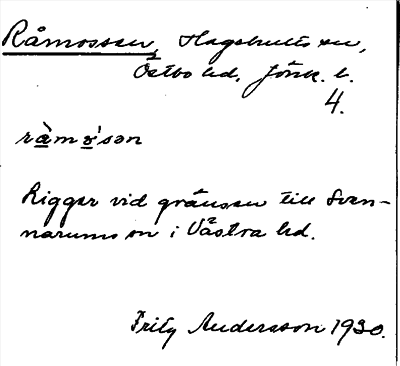 Råmossen, Hagshults sn,
Östbo hd, Jönk. l.
4.
rå̀mo̱'sən
Ligger vid gränsen till Sven-
narums sn i Västra hd.
Fritz Andersson 1930.